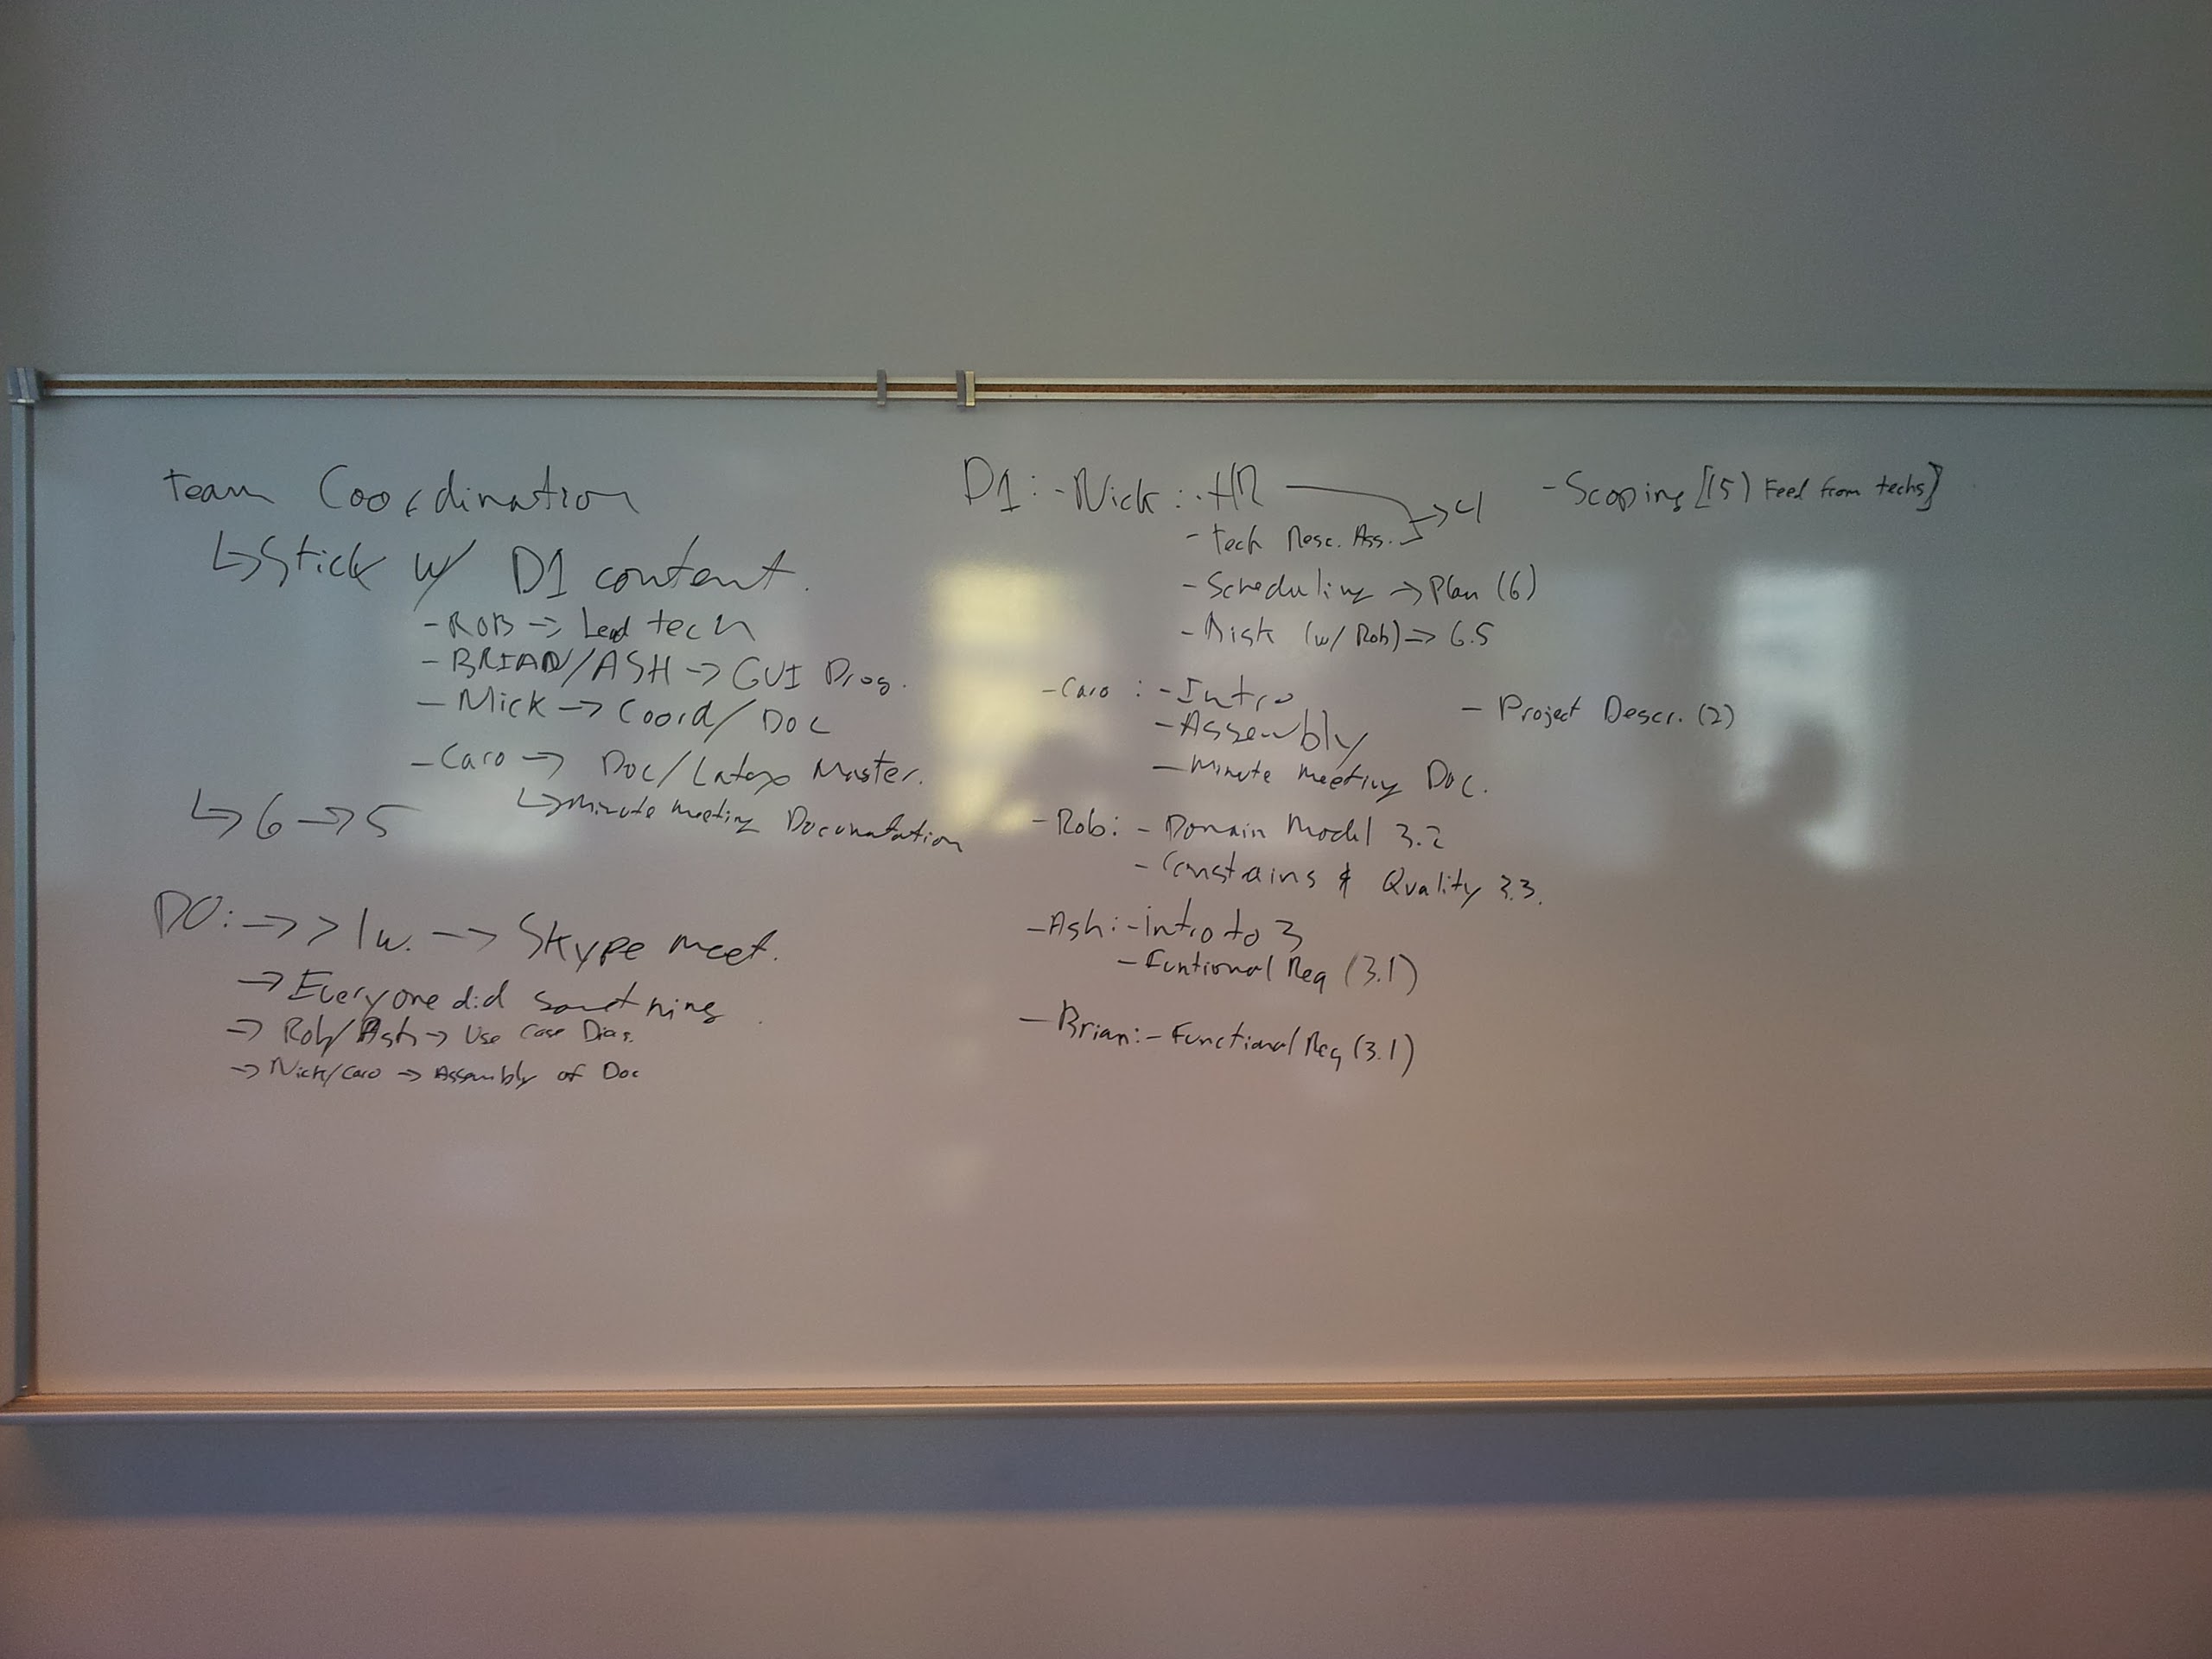 Team Coordination
↳ Stick w/ D1 content.
- ROB → Lead tech
- BRIAN/ASH → GUI Prog.
- Nick → Coord/Doc
- Caro → Doc/Latex Master.
↳ Minute meeting Documatation
↳ 6 → 5
D0: → > 1w. → Skype meet.
→ Everyone did something.
→ Rob/Ash → Use Case Diag.
→ Nick/Caro → Assembly of Doc
D1: - Nick: - HR → 4
- Tech Resc. Ass.
- Scheduling → Plan (6)
- Risk (w/ Rob) → 6.5
- Scoping [(5) Feed from techs]
- Caro: - Intro
- Assembly
- Minute meeting Doc.
- Project Descr. (2)
- Rob: - Domain Model 3.2
- Constrains & Quality 3.3.
- Ash: - intro to 3
- Funtional Req (3.1)
- Brian: - Functional Req (3.1)